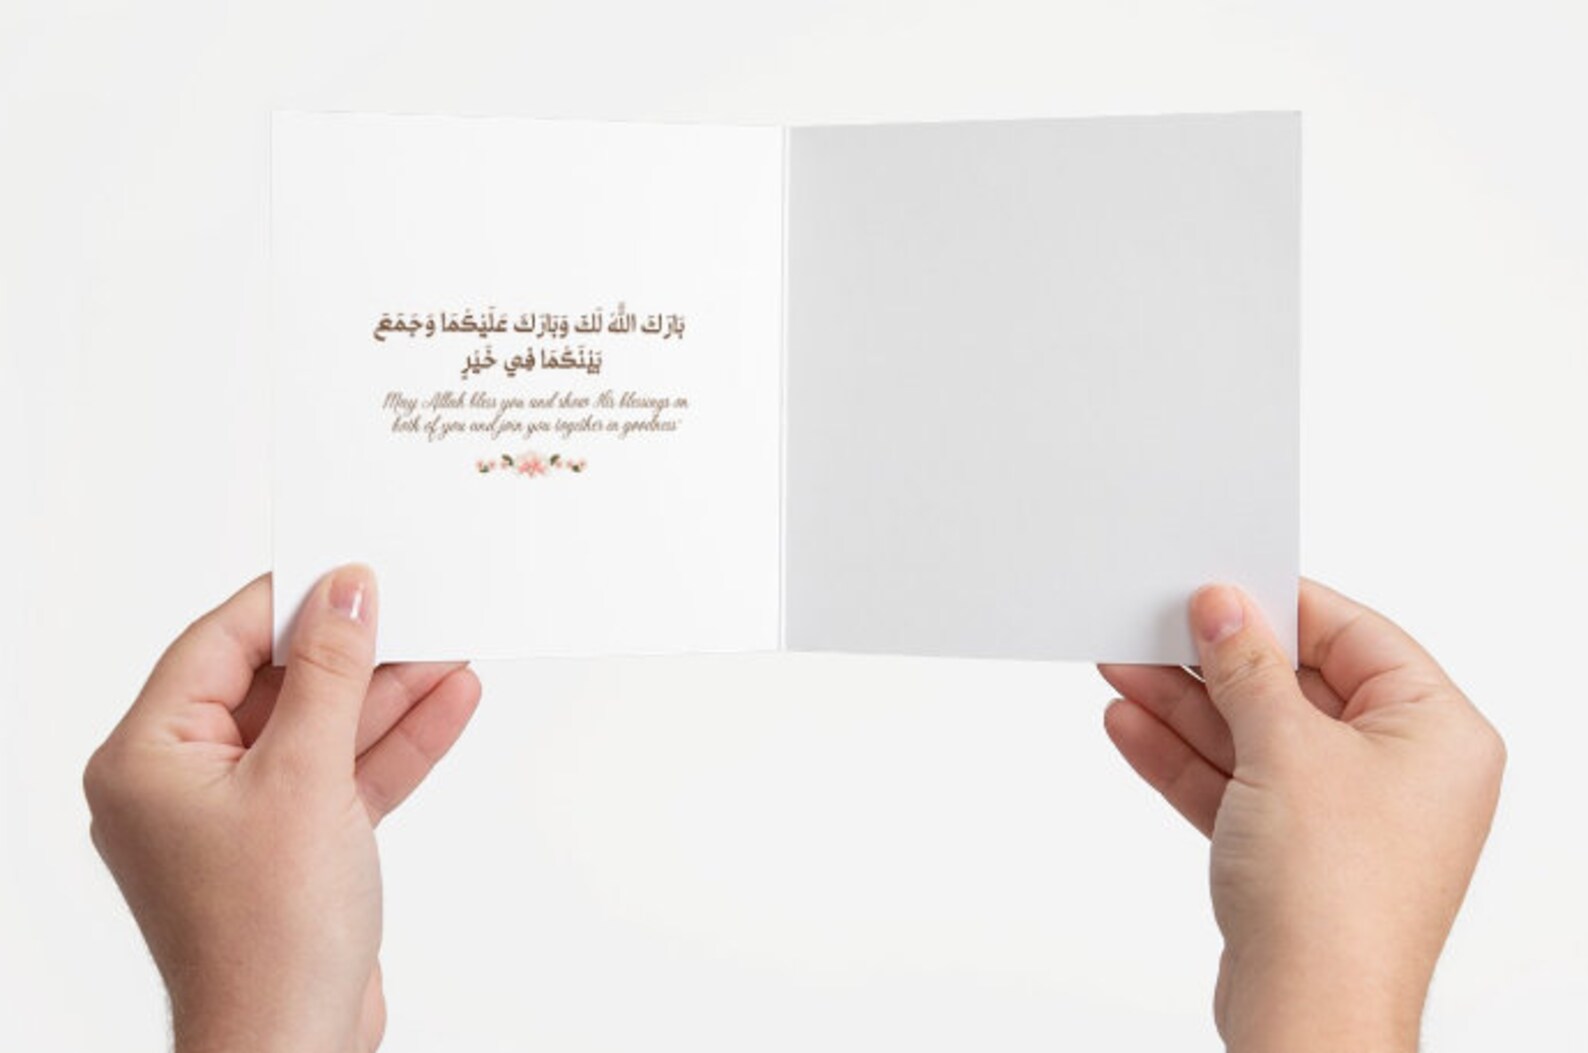 بَارَكَ اللَّهُ لَكَ وَبَارَكَ عَلَيْكُمَا وَجَمَعَ
بَيْنَكُمَا فِي خَيْرٍ
May Allah bless you and show His blessings on
both of you and join you together in goodness'